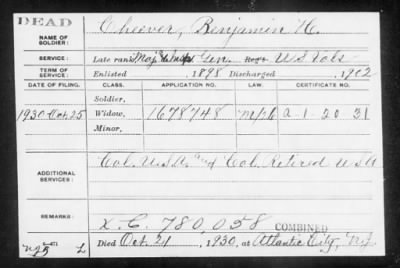 DEAD
NAME OF SOLDIER: Cheever, Benjamin H.
SERVICE: Late rank, Maj & Insp Gen. Reg't U S Vols
TERM OF SERVICE: Enlisted 1898 Discharged 1902
DATE OF FILING. CLASS. APPLICATION NO. LAW. CERTIFICATE NO.
Soldier,
1930 Oct. 25 Widow, 1678748 A-1-20 31
Minor,
ADDITIONAL SERVICES: Col. U.S.A. and Col. Retired U S A
REMARKS: X.C. 780,058 COMBINED
Died Oct. 21, 1930, at Atlantic City, N.J.